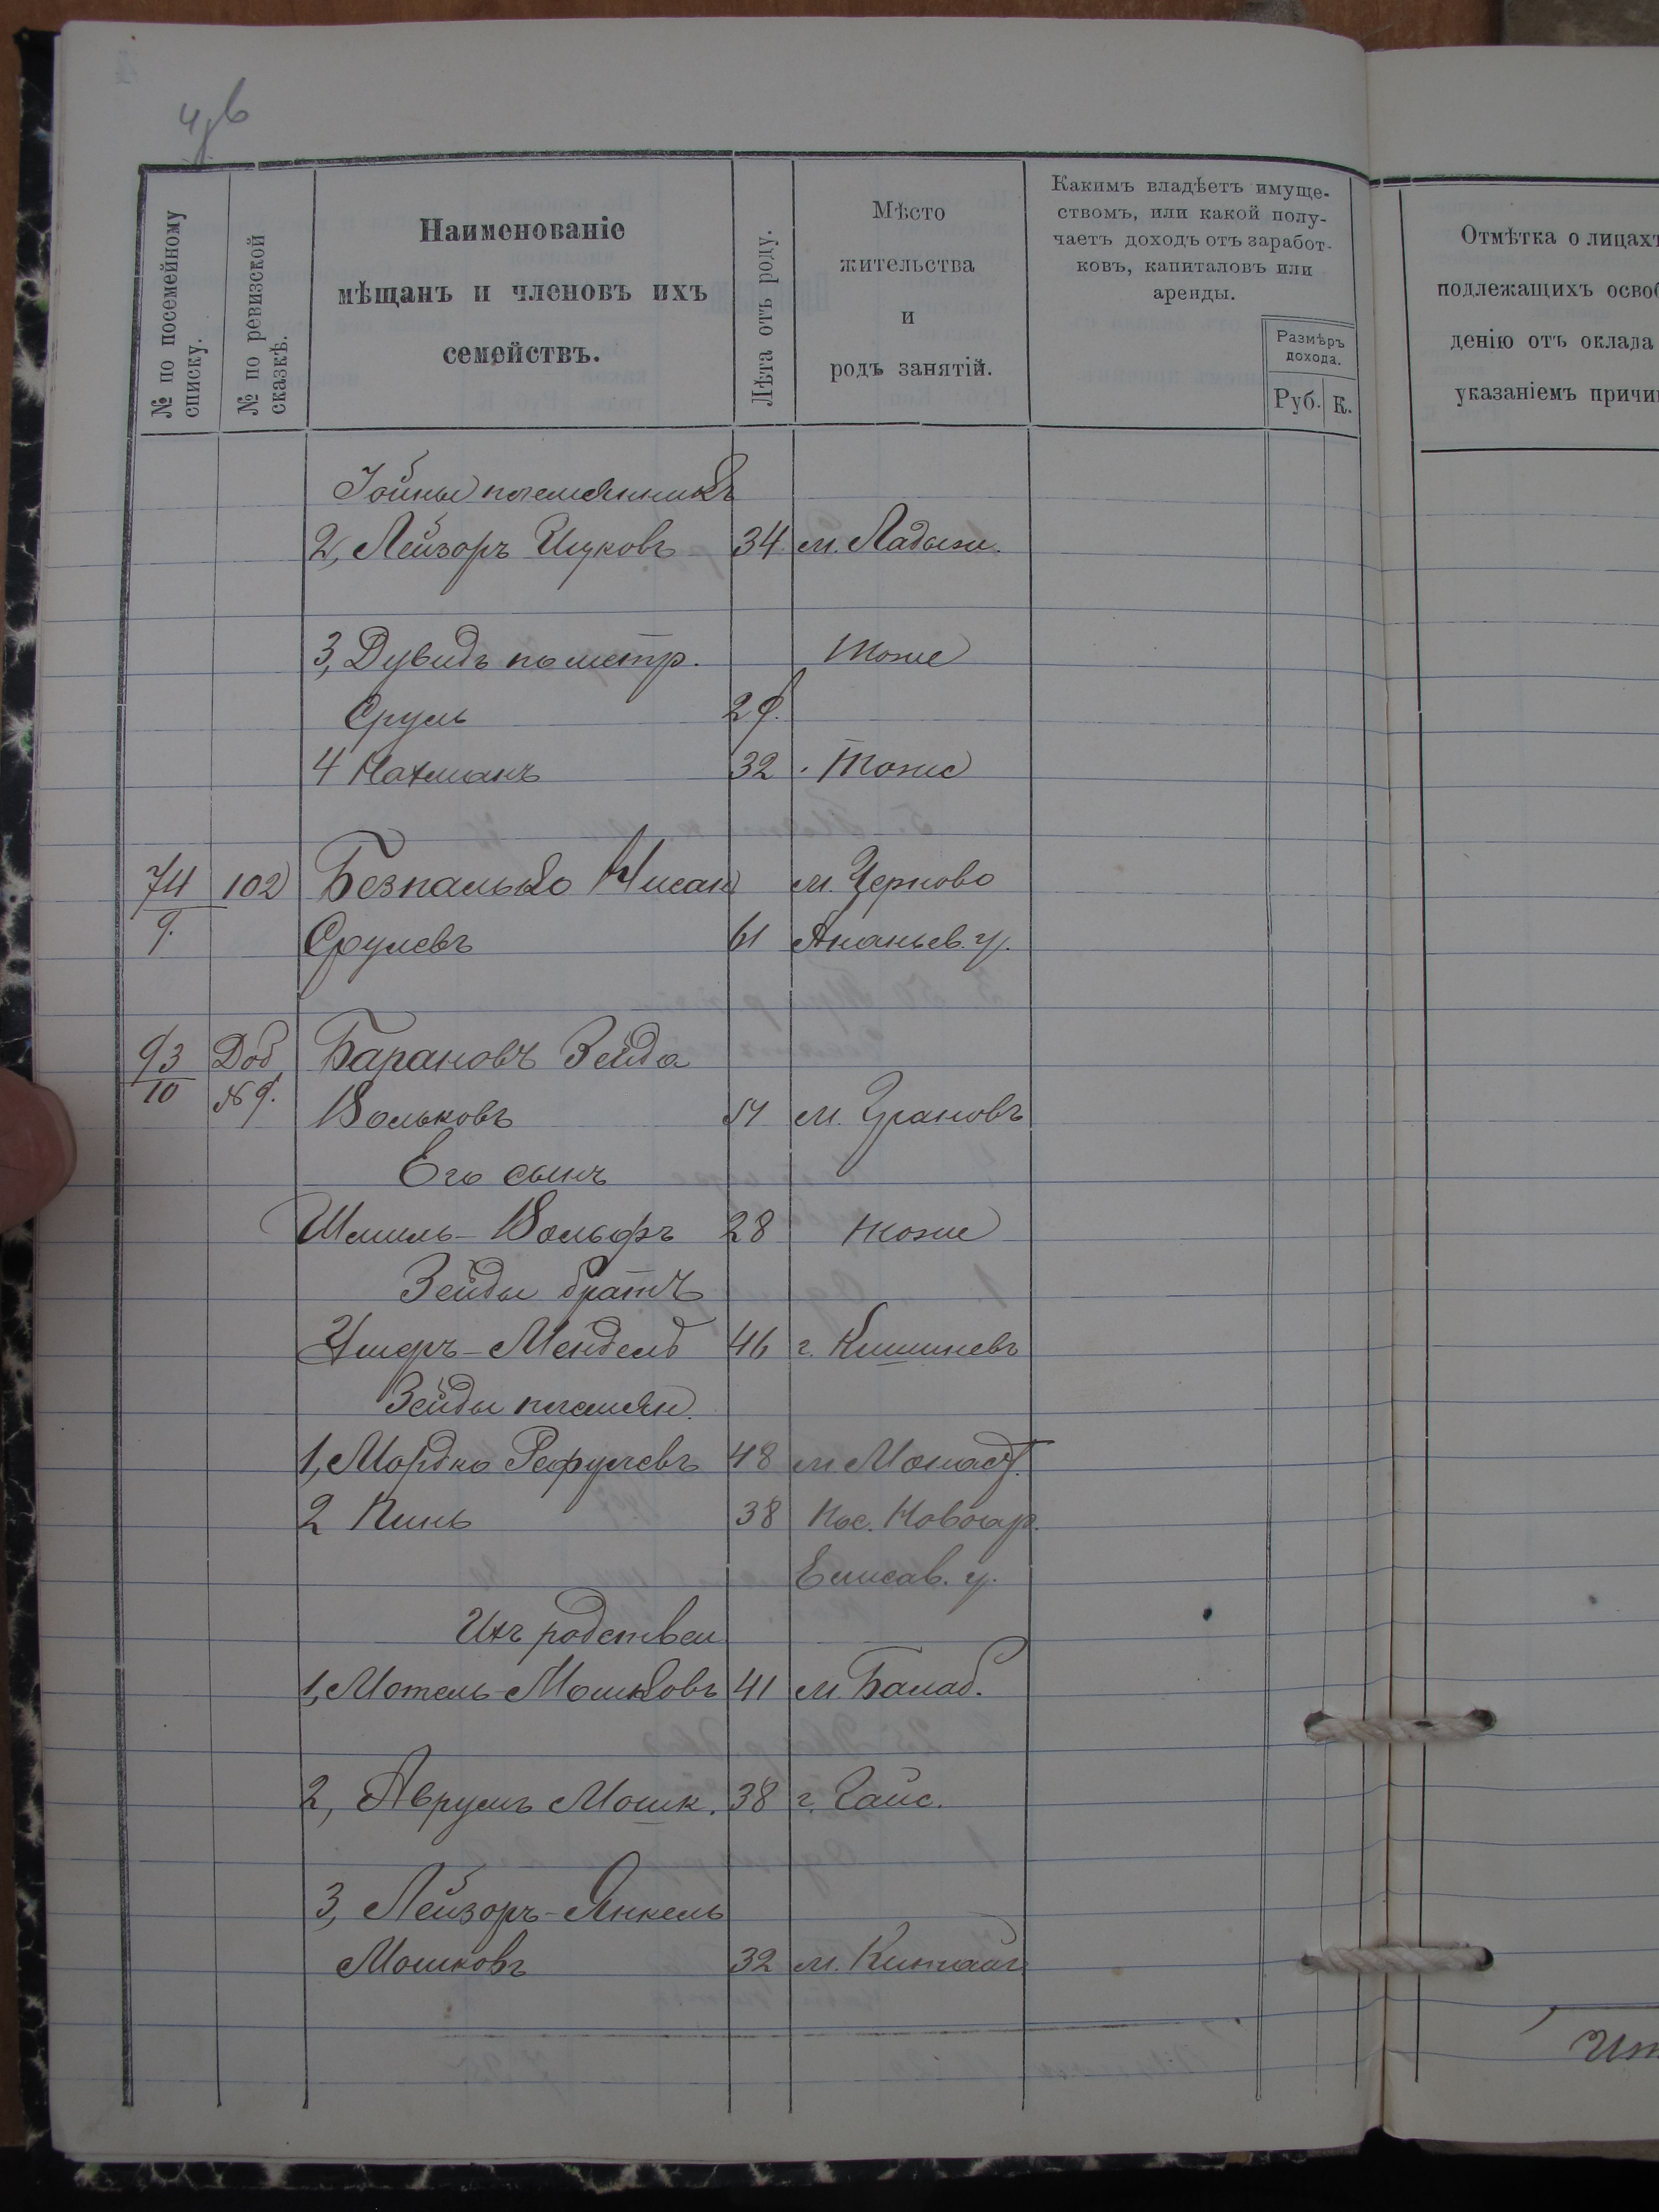 № по посемейному списку.
№ по ревизской сказкѣ.
Наименованіе
мѣщанъ и членовъ ихъ
семействъ.
Лѣта отъ роду.
Мѣсто
жительства
и
родъ занятій.
Какимъ владѣетъ имуще-
ствомъ, или какой полу-
чаетъ доходъ отъ заработ-
ковъ, капиталовъ или
аренды.
Размѣръ
дохода.
Руб. К.
Отмѣтка о лицахъ
подлежащихъ освоб
денію отъ оклада
указаніемъ причи
Іойны племянникъ
2, Лейзоръ Ицковъ 34 м. Ладыж.
3, Дувидъ по метр. тоже
Сруль 29.
4 Нахманъ 32 тоже
74 102 Безпалько Нисан м. Черново
9. Срулевъ 61 Ананьев. у.
93 Доб Барановъ Зейда
10 № 9. Вольковъ 54 м. Грановъ
Его сынъ
Шмиль-Вольфъ 28 тоже
Зейды братъ
Ушеръ-Мендель 46 г. Кишиневъ
Зейды племян.
1, Мордко Рефулевъ 48 м. Монаст.
2 Пинь 38 пос. Новоар.
Елисав. у.
Ихъ родствен
1, Мотель Мошковъ 41 м. Балаб.
2, Аврумъ Мошк. 38 г. Гайс.
3, Лейзоръ-Янкель
Мошковъ 32 м. Китайг
Ит